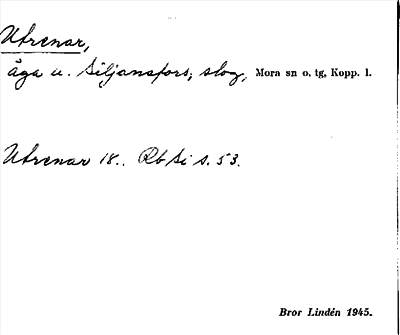 Utrenar,
äga u. Siljansfors, skog, Mora sn o. tg, Kopp. l.
Utrenar 18.. Rb Si s. 53.
Bror Lindén 1945.